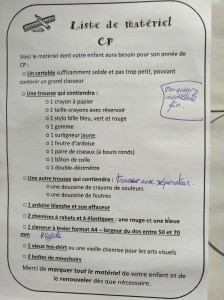 Liste de matériel
CP
Voici le matériel dont votre enfant aura besoin pour son année de
CP :
□ Un cartable suffisamment solide et pas trop petit, pouvant
contenir un grand classeur
□ Une trousse qui contiendra :
o 1 crayon à papier
o 1 taille-crayons avec réservoir
o 1 stylo bille bleu, vert et rouge
o 1 gomme
o 1 surligneur jaune.
o 1 feutre d'ardoise
o 1 paire de ciseaux (à bouts ronds)
o 1 bâton de colle
o 1 double-décimètre
marqueurs
fin.
□ Une autre trousse qui contiendra : trousse avec séparation.
o une douzaine de crayons de couleurs
o une douzaine de feutres
□ 1 ardoise blanche et son effaceur
□ 2 chemises à rabats et à élastiques : une rouge et une bleue
□ 1 classeur à levier format A4 – largeur du dos entre 50 et 70
mm Rigide
□ 1 vieux tee-shirt ou une vieille chemise pour les arts visuels
□ 2 boîtes de mouchoirs
Merci de marquer tout le matériel de votre enfant et de
le renouveler dès que nécessaire.